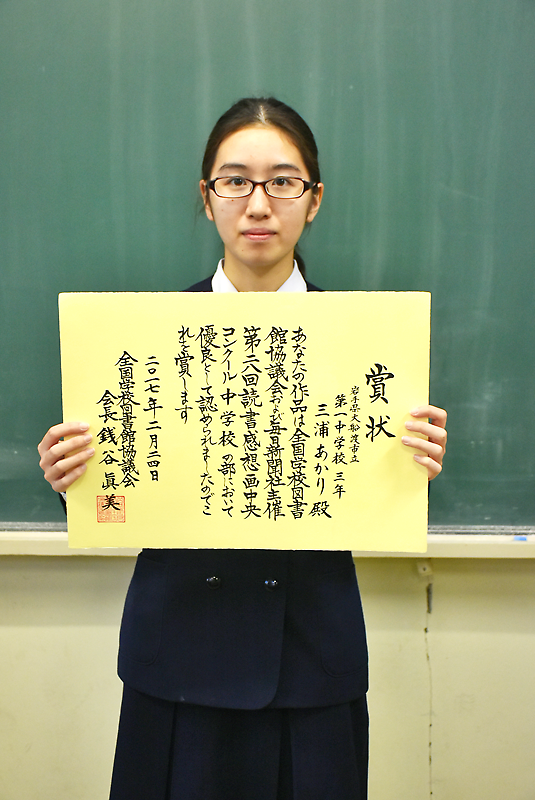 賞状
岩手県大船渡市立
第一中学校 三年
三浦あかり 殿
あなたの作品は全国学校図書
館協議会および毎日新聞社主催
第二八回読書感想画中央
コンクール 中学校 の部において
優良として認められましたのでこ
れを賞します
二〇一七年二月二四日
全国学校図書館協議会
会長 銭谷眞美